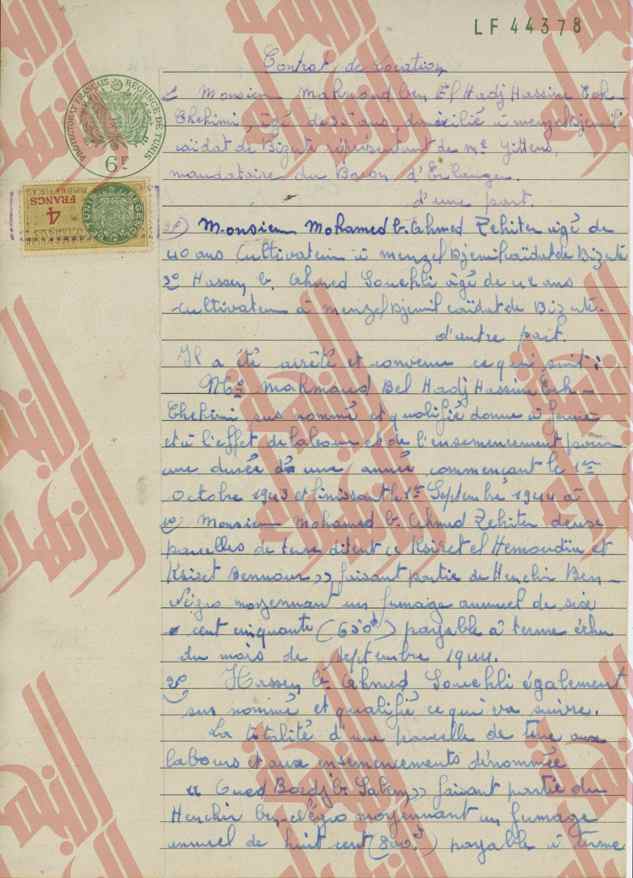 LF 44378
Contrat de Location
PROTECTORAT FRANÇAIS REGENCE DE TUNIS
6F
4
FRANCS
1º Monsieur Mahmoud ben El Hadj Hassine Ech-
Chekimi, âgé de ans domicilié à menzel djemil
caïdat de Bizerte représentant de Me Gittens,
mandataire du Baron d'Erlanger.
d'une part.
1º) Monsieur Mohamed b. Ahmed Zehiter âgé de
40 ans Cultivateur à menzel Djemil caïdat de Bizerte
2º Hassen b. Ahmed Souehli âgé de ans
cultivateur à Menzel Djemil caïdat de Bizerte.
d'autre part.
Il a été arrêté et convenu ce qui suit :
Mr Mahmoud Bel Hadj Hassine Ech-
Chekimi sus nommé et qualifié donne à
et à l'effet de labour et de l'ensemencement pour
une durée d'une année commençant le 1er
Octobre 1943 et finissant le 1er Septembre 1944 à
1º) Monsieur Mohamed b. Ahmed Zehiter deux
parcelles de terre disent « Ksiret el Hemoudia et
Ksiset Bennour » faisant partie de Henchir Ben-
Négro moyennant un fumage annuel de six
cent cinquante (650f) payable à terme échu
du mois de septembre 1944.
2º Hassen b. Ahmed Souehli également
sus nommé et qualifié ce qui va suivre.
La totalité d'une parcelle de terre aux
labours et aux ensemencements dénommée
« Oued Bordj b. Salem » faisant partie du
Henchir ben Négro moyennant un fumage
annuel de huit cent (800f) payable à terme